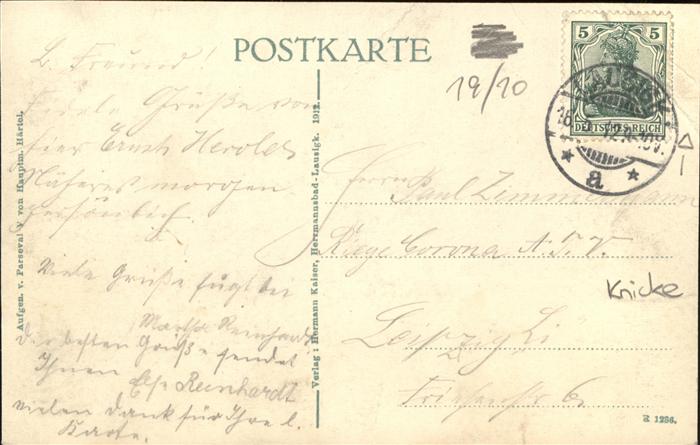 POSTKARTE
19/10
5 5
DEUTSCHES REICH
a
L. Freund!
Grüße von
hier Ernst Herold
Näheres morgen
persönlich.
Viele Grüße fügt bei
Martha Reinhardt
Die besten Grüße sendet
Ihnen Else Reinhardt
vielen Dank für Ihre l.
Karte.
Aufgen. v. Parseval V von Hauptm. Härtel.
Verlag: Hermann Kaiser, Herrmannsbad-Lausigk. 1912.
Herrn
Paul Zimmermann
Riege Corona A.T.V.
Knicke
Leipzig Li
6.
R 1286.